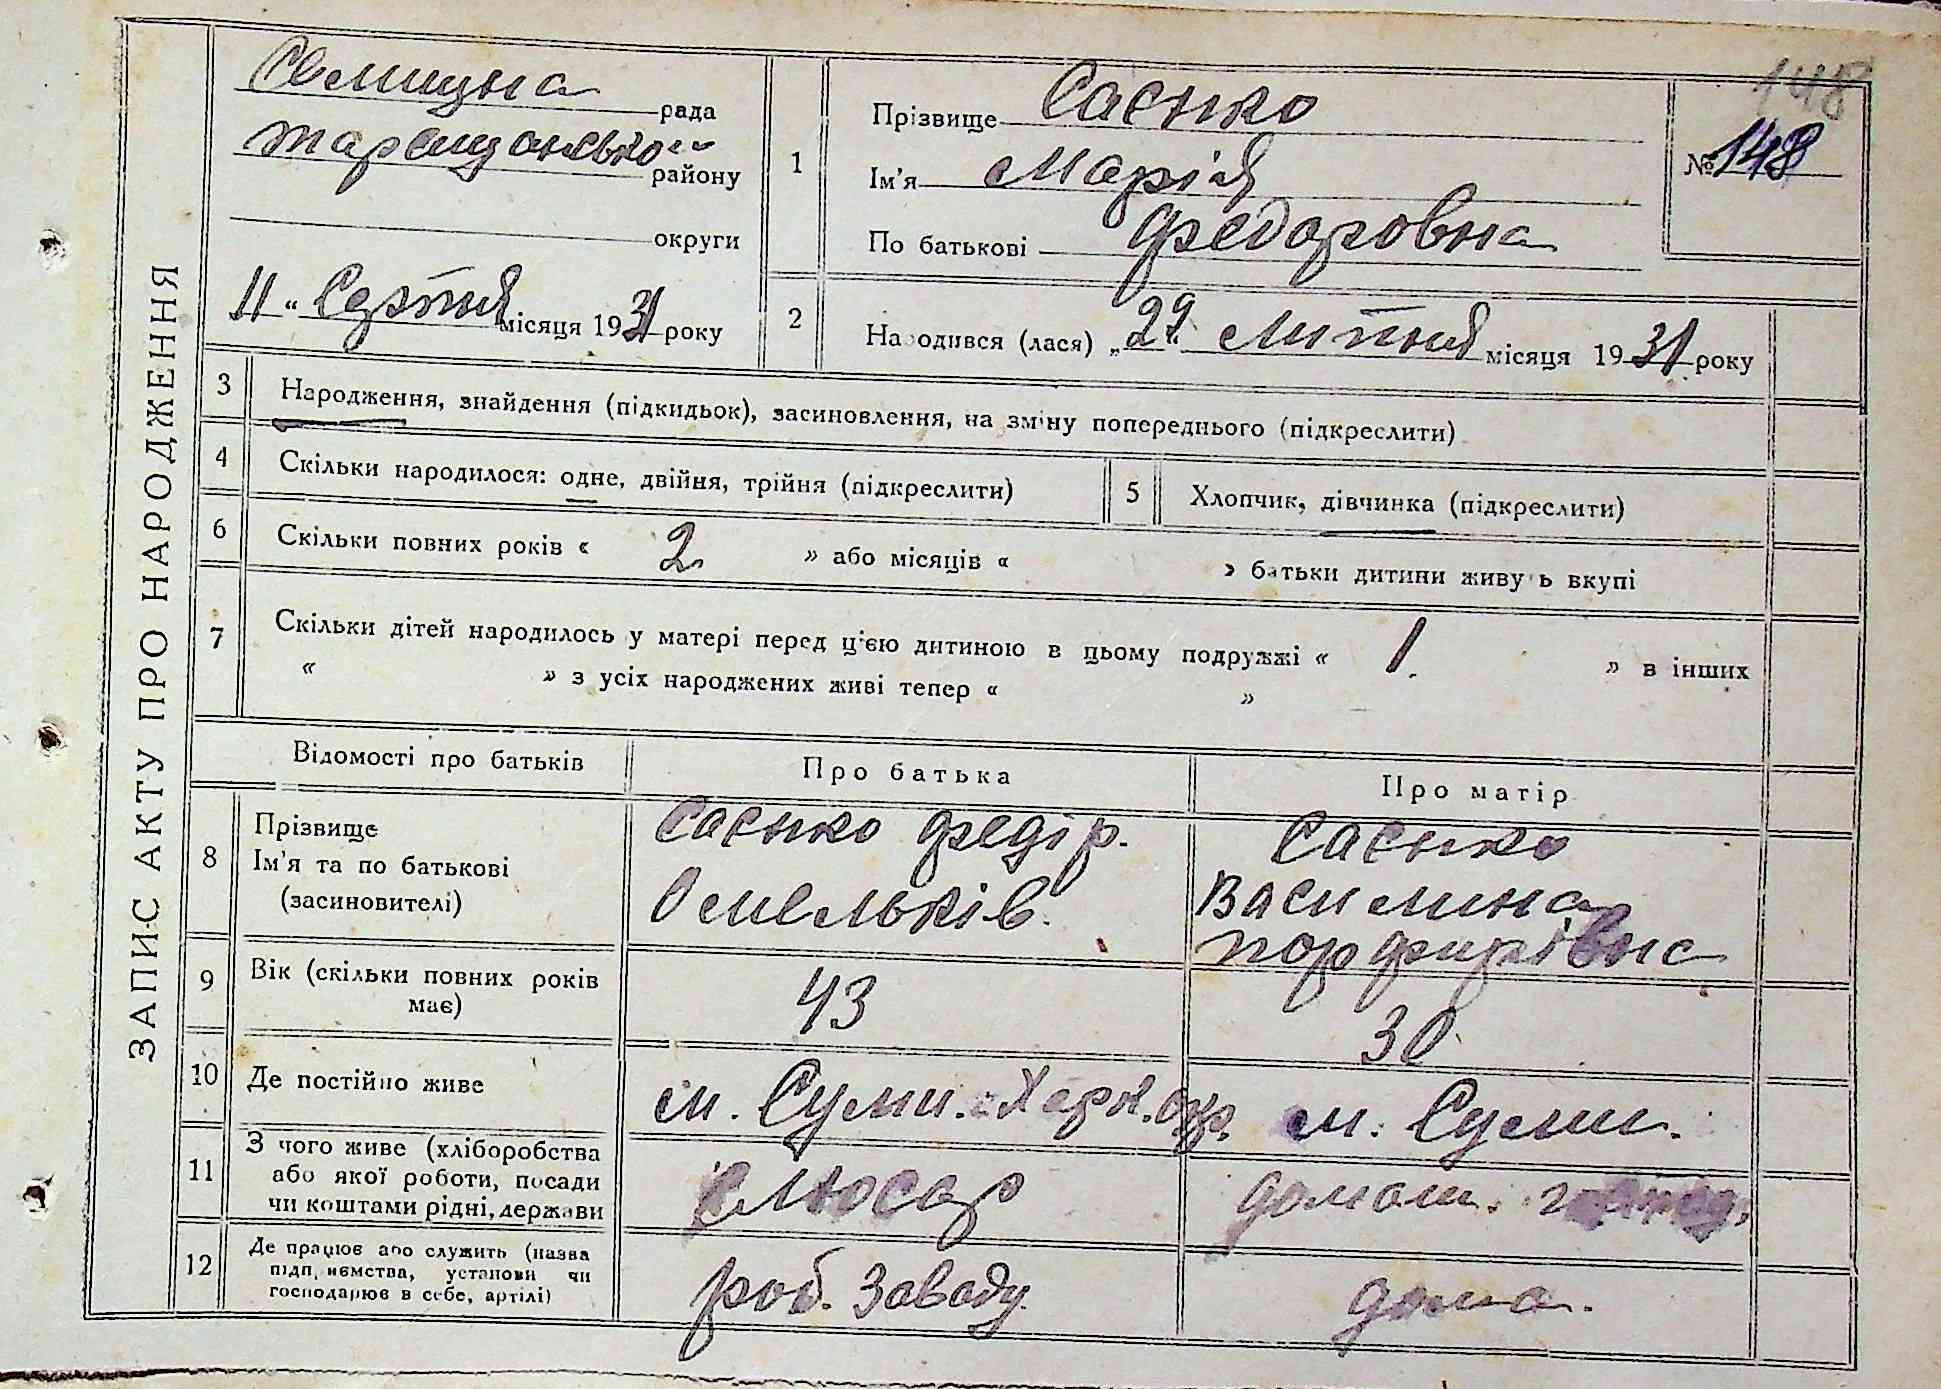 148
ЗАПИС АКТУ ПРО НАРОДЖЕННЯ
Селищна рада
Таращанської району
округи
11 " Серпня місяця 1931 року
1
Прізвище Саєнко
Ім'я Марія
По батькові Федоровна
№ 148
2
Народився (лася) „29" Липня місяця 1931 року
3 Народження, знайдення (підкидьок), засиновлення, на зміну попереднього (підкреслити)
4 Скільки народилося: одне, двійня, трійня (підкреслити)
5 Хлопчик, дівчинка (підкреслити)
6 Скільки повних років « 2 » або місяців « » батьки дитини живуть вкупі
7 Скільки дітей народилось у матері перед цією дитиною в цьому подружжі « 1. » в інших
« » з усіх народжених живі тепер « »
Відомості про батьків
Про батька
Про матір
8 Прізвище
Ім'я та по батькові
(засиновителі)
Саєнко Федір.
Омельків.
Саєнко
Василина
Порфирівна
9 Вік (скільки повних років
має)
43
30
10 Де постійно живе
м. Суми. Окр.
м. Суми.
11 З чого живе (хліборобства
або якої роботи, посади
чи коштами рідні, держави
слюсар
домаш.
12 Де працює або служить (назва
підприємства, установи чи
господарює в себе, артілі)
роб. Заводу.
дома.